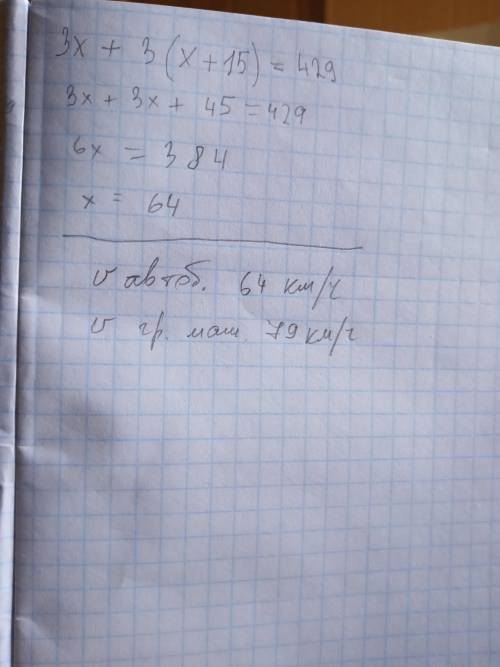 3x + 3(x+15) = 429
3x + 3x + 45 = 429
6x = 384
x = 64
v автоб. 64 км/ч
v гр. маш. 79 км/ч